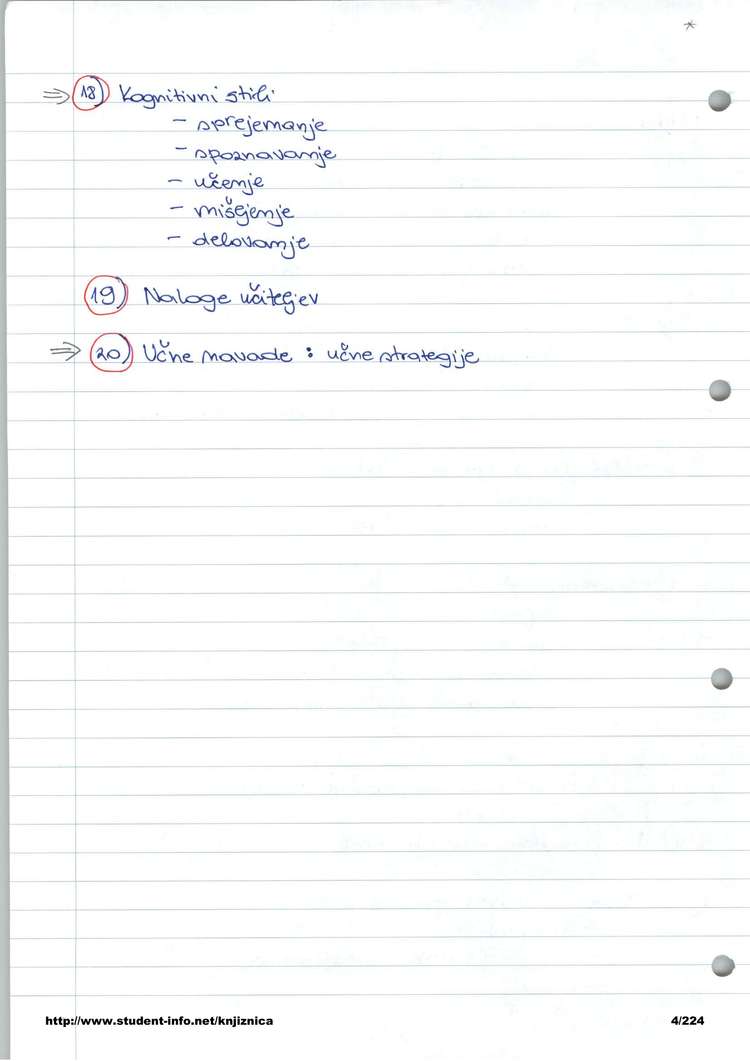 *
⇒ 18) Kognitivni stili
- sprejemanje
- spoznavanje
- učenje
- mišljenje
- delovanje
19) Naloge učiteljev
⇒ 20) Učne navade : učne strategije
http://www.student-info.net/knjiznica 4/224